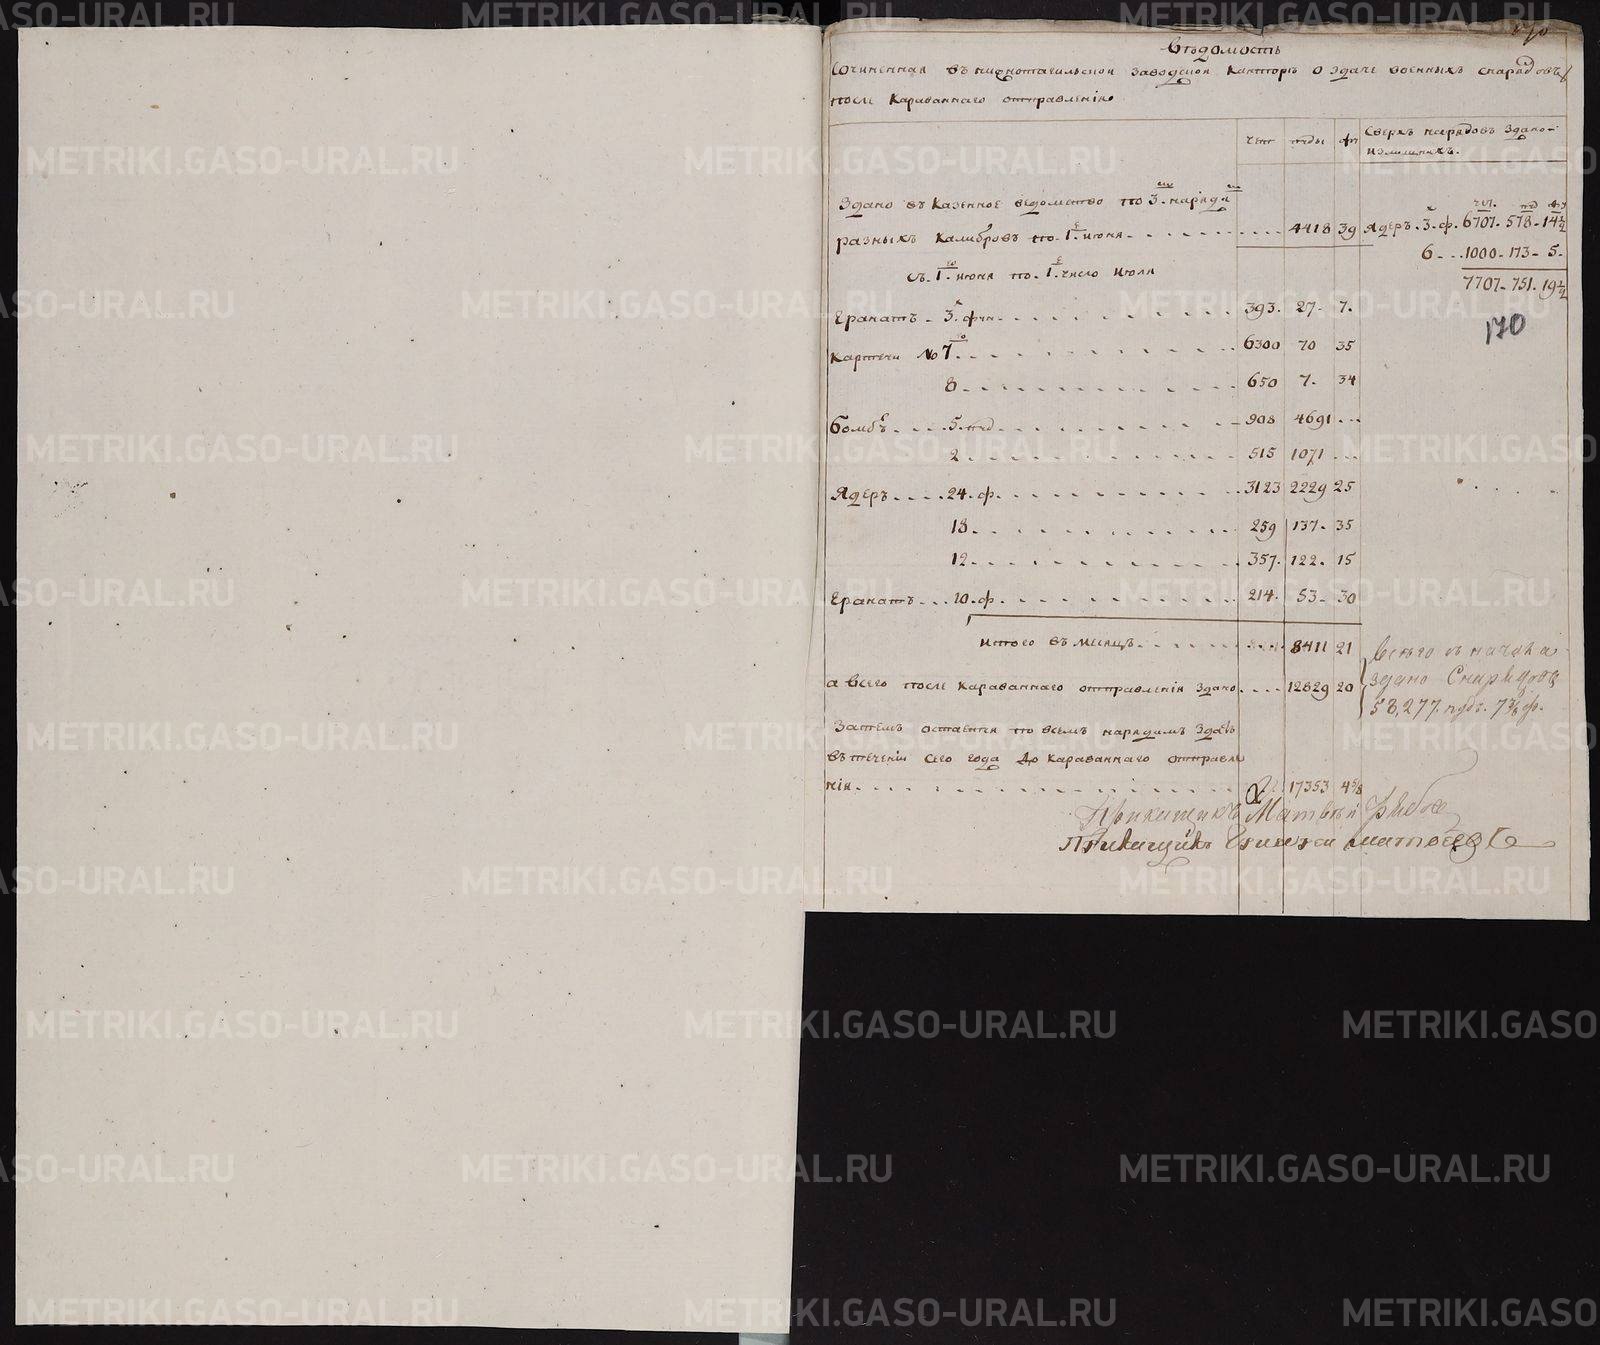 170
Вѣдомость
Сочиненная въ нижнотагильской заводской канторѣ о здаче военныхъ снарядовъ
после караваннаго отправленія
чет пуды фу Сверхъ нарядовъ здано
излишнихъ.
Здано въ казенное ведомство по 3.му нарядам
разныхъ калибровъ по 1.е июня 4418 39
чет. пуд фу
Ядеръ 3.х ф. 6707 578 14½
6 1000 173 5
7707 751 19½
съ 1.го июня по 1.е число июля
Гранатъ 3.х фун 393 27 7
170
Картечи №7го 6300 70 35
8 650 7 34
Бомбъ 5 пуд 908 4691
2 515 1071
Ядеръ 24 ф. 3123 2229 25
18 259 137 35
12 357 122 15
Гранатъ 10 ф. 214 53 30
итого въ месяцъ 8411 21
а всего после караваннаго отправленія здано 12829 20
всего съ начала
здано снарядовъ
58,277 пуд. 7⅜ ф.
Затемъ остается по всемъ нарядамъ здать
въ теченіи сего года до караваннаго отправле
нія 17353 4⅝
Прикащикъ Матвей
Прикащикъ